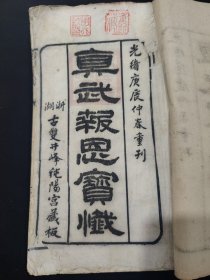 光緒庚辰仲春重刊
真武報恩寶懺
浙湖
古雙井峰純陽宮藏板